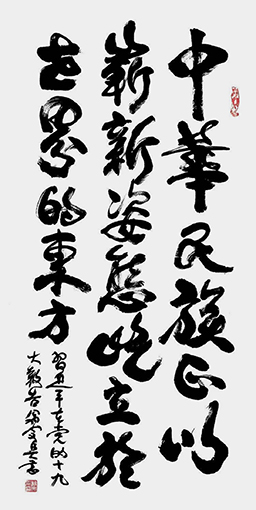 中華民族正以
嶄新姿態屹立於
世界的東方
習近平在党的十九
大報告